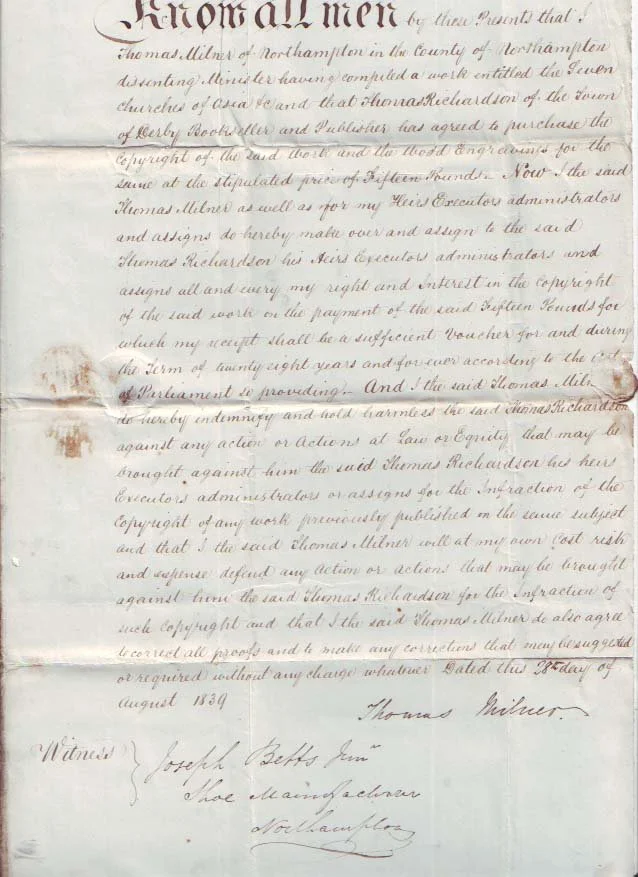 Know all men by these Presents that I
Thomas Milner of Northampton in the County of Northampton
dissenting Minister having compiled a work entitled the Seven
churches of Asia &c and that Thomas Richardson of the Town
of Derby Bookseller and Publisher has agreed to purchase the
Copyright of the said Work and the Wood Engravings for the
same at the stipulated price of Fifteen Pounds. Now I the said
Thomas Milner as well as for my Heirs Executors administrators
and assigns do hereby make over and assign to the said
Thomas Richardson his Heirs Executors administrators and
assigns all and every my right and Interest in the Copyright
of the said work on the payment of the said Fifteen Pounds for
which my receipt shall be a sufficient Voucher for and during
the Term of twenty eight years and for ever according to the Act
of Parliament so providing. And I the said Thomas Miln
do hereby indemnify and hold harmless the said Thomas Richardson
against any action or Actions at Law or Equity that may be
brought against him the said Thomas Richardson his heirs
Executors administrators or assigns for the Infraction of the
Copyright of any work previously published on the same subject
and that I the said Thomas Milner will at my own Cost risk
and expense defend any Action or actions that may be brought
against him the said Thomas Richardson for the Infraction of
such Copyright and that I the said Thomas Milner do also agree
to correct all proofs and to make any corrections that may be suggested
or required without any charge whatever Dated this 28th day of
August 1839
Thomas Milner.
Witness
Joseph Betts Junr
Shoe Manufacturer
Northampton